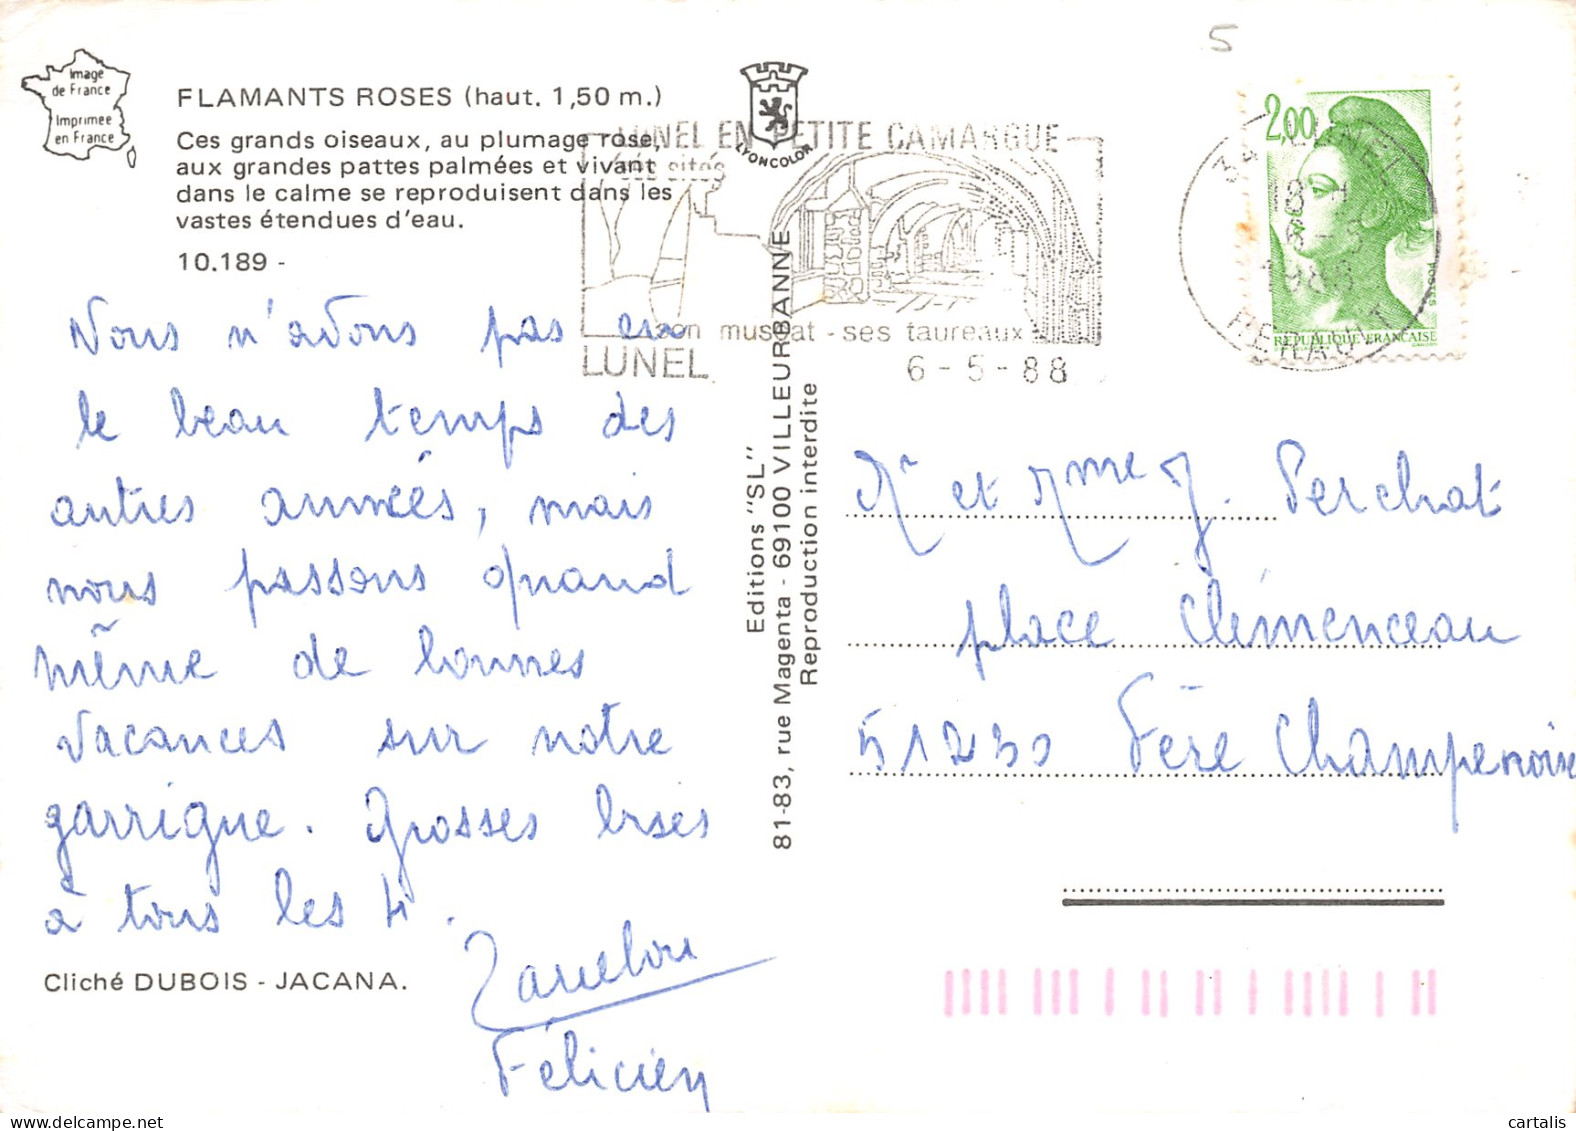 Image
de France
Imprimee
en France
FLAMANTS ROSES (haut. 1,50 m.)
Ces grands oiseaux, au plumage rose,
aux grandes pattes palmées et vivant
dans le calme se reproduisent dans les
vastes étendues d'eau.
10.189 -
Nous n'avons pas eu
le beau temps des
autres années, mais
nous passons quand
même de bonnes
vacances sur notre
garrigue. Grosses bises
à tous les 4.
Félicien
Cliché DUBOIS - JACANA.
LYONCOLOR
LUNEL EN PETITE CAMARGUE
ses sites
son muscat - ses taureaux
LUNEL
6 - 5 - 88
Editions "SL"
81-83, rue Magenta - 69100 VILLEURBANNE
Reproduction interdite
5
2,00
POSTES
REPUBLIQUE FRANCAISE
34 LUNEL
18 H
6 - 5
1988
HERAULT
Mr et Mme J. Perchat
place Clémenceau
51230 Fère Champenoise
cartalis